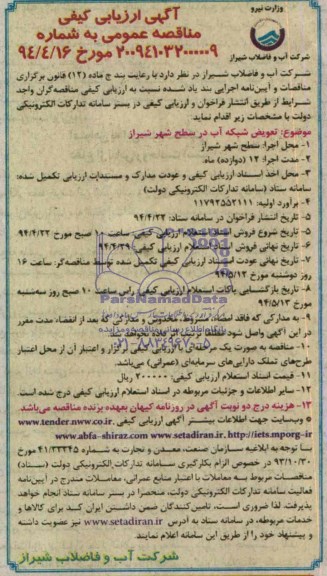 وزارت نیرو
شرکت آب و فاضلاب شیراز
آگهی ارزیابی کیفی
مناقصه عمومی به شماره
۲۰۰۹۴۱۰۳۲۰۰۰۰۰۹ مورخ ۹۴/۴/۱۶
شرکت آب و فاضلاب شیراز در نظر دارد با رعایت بند ج ماده (۱۲) قانون برگزاری
مناقصات و آیین‌نامه اجرایی بند یاد شده نسبت به ارزیابی کیفی مناقصه‌گران واجد
شرایط از طریق انتشار فراخوان و ارزیابی کیفی در بستر سامانه تدارکات الکترونیکی
دولت با مشخصات زیر اقدام نماید.
موضوع: تعویض شبکه آب در سطح شهر شیراز
۱- محل اجرا: سطح شهر شیراز
۲- مدت اجرا: ۱۲ (دوازده) ماه.
۳- محل اخذ اسناد ارزیابی کیفی و عودت مدارک و مستندات ارزیابی تکمیل شده:
سامانه ستاد (سامانه تدارکات الکترونیکی دولت)
۴- برآورد اولیه: ۱۱۷۹۲۵۵۲۱۱۱
۵- تاریخ انتشار فراخوان در سامانه ستاد:
۶- تاریخ شروع فروش اسناد استعلام ارزیابی کیفی ساعت ۱۰ صبح مورخ
۷- تاریخ نهائی فروش استعلام ارزیابی کیفی
۷- تاریخ نهائی عودت اسناد ارزیابی کیفی تکمیل شده توسط مناقصه‌گر: ساعت ۱۶
روز دوشنبه مورخ
۸- تاریخ بازگشایی پاکات استعلام ارزیابی کیفی: راس ساعت ۱۰ صبح روز سه‌شنبه
مورخ ۹۴/۵/۱۳
ParsNamadData
پایگاه اطلاع رسانی مناقصه و مزایده
۰۲۱-۸۸۳۴۹۶۷۰-۵
۹- به مدارکی که فاقد امضاء، مشروط، مخدوش و مدارکی که بعد از انقضاء مدت مقرر
در این آگهی واصل شود
۱۰- مناقصه به صورت یک مرحله‌ای با ارزیابی کیفی برگزار و اعتبار آن از محل اعتبار
طرح‌های تملک دارایی‌های سرمایه‌ای (عمرانی) می‌باشد.
قیمت اسناد استعلام ارزیابی کیفی: ۲۰۰۰۰۰ ریال
۱۲- سایر اطلاعات و جزئیات مربوطه در اسناد استعلام ارزیابی کیفی درج شده است.
۱۳- هزینه درج دو نوبت آگهی در روزنامه کیهان بعهده برنده مناقصه می‌باشد.
وبسایت جهت اطلاعات بیشتر آگهی ارزیابی کیفی www.tender.nww.co.ir
www.abfa-shiraz.com www.setadiran.ir, http://iets.mporg-ir
با توجه به ابلاغیه سازمان صنعت، معدن و تجارت به شماره ۴۱/۳۳۳۴۵ مورخ
۹۳/۱۰/۳۰ در خصوص الزام بکارگیری سامانه تدارکات الکترونیکی دولت (ستاد)
مناقصات مربوط به معاملات با اعتبار منابع عمرانی، معاملات مندرج در آیین‌نامه
فعالیت سامانه تدارکات الکترونیکی دولت، منحصرا در بستر سامانه ستاد انجام خواهد
پذیرفت. لذا ضروری است، تامین‌کنندگان ضمن داشتن ایران کد برای کالاها و
خدمات مربوطه، در سامانه ستاد به آدرس www.setadiran.ir نیز عضویت داشته
و پیشنهاد خود را از طریق این سامانه اعلام نمایند.
شرکت آب و فاضلاب شیراز